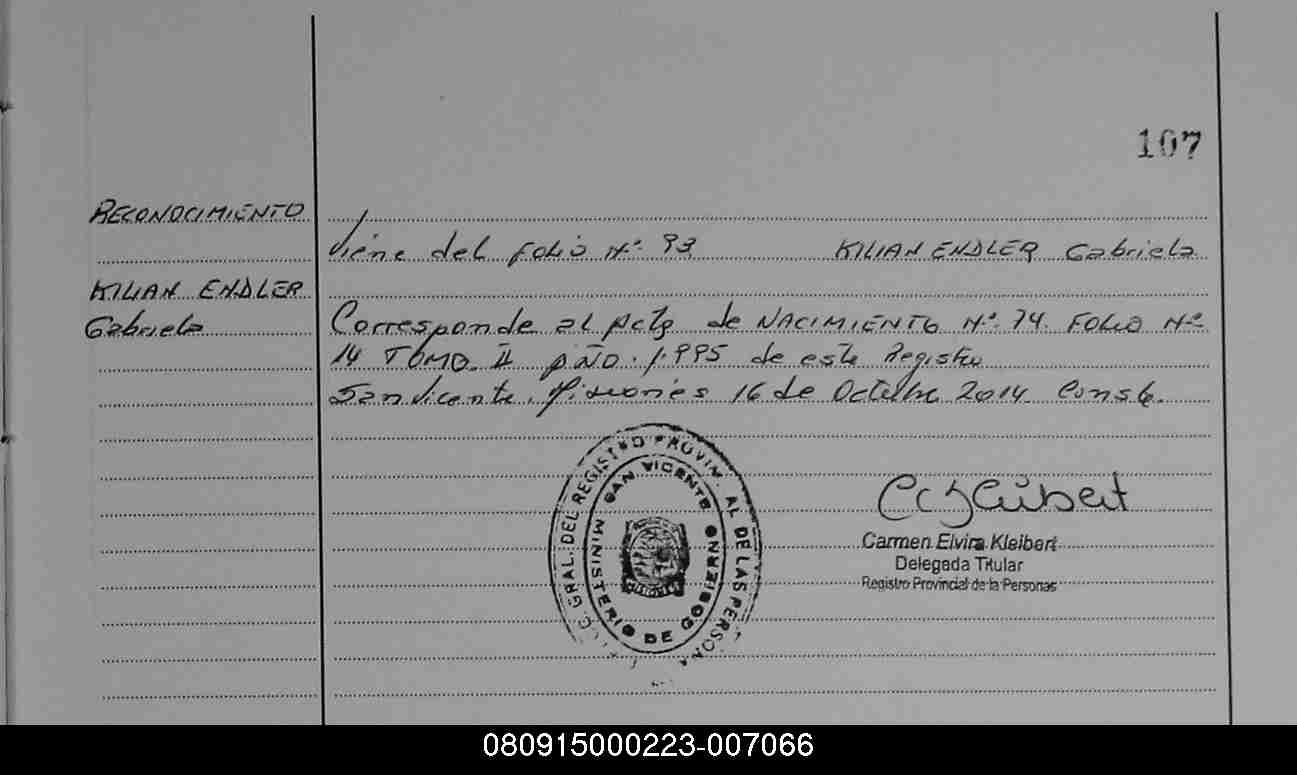 107
RECONOCIMIENTO
Viene del FOLIO Nº 93 KILIAN ENDLER Gabriela
KILIAN ENDLER
Gabriela
Corresponde al Acta de NACIMIENTO Nº 74. FOLIO Nº
14 TOMO II AÑO. 1.995 de este Registro
San Vicente, Misiones 16 de Octubre 2014. Conste.
GRAL. DEL REGISTRO PROVIN. AL DE LAS PERSONA
SAN VICENTE
MINISTERIO DE GOBIERNO
Carmen Elvira Kleibert
Delegada Titular
Registro Provincial de la Personas
080915000223-007066